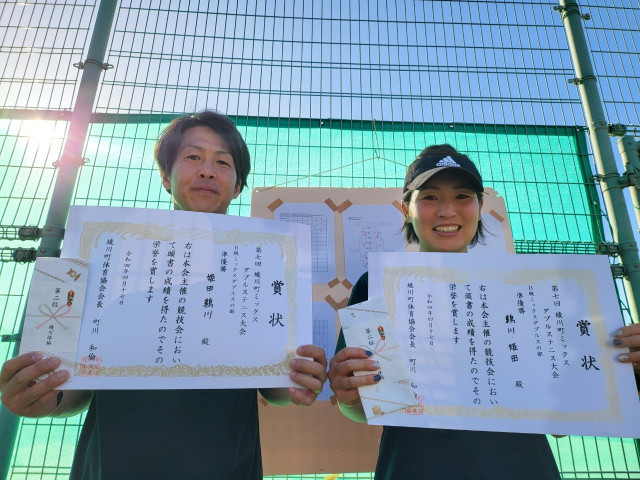 賞状
第七回 綾川町ミックス
ダブルステニス大会
B級ミックスダブルスの部
準優勝
姫田
鶴川
殿
右は本会主催の競技会におい
て頭書の成績を得たのでその
栄誉を賞します
令和四年四月十七日
綾川町体育協会会長
町川
和倫
第二位
賞状
第七回 綾川町ミックス
ダブルステニス大会
B級ミックスダブルスの部
準優勝
鶴川
姫田
殿
右は本会主催の競技会におい
て頭書の成績を得たのでその
栄誉を賞します
令和四年四月十七日
綾川町体育協会会長
町川
第二位
adidas